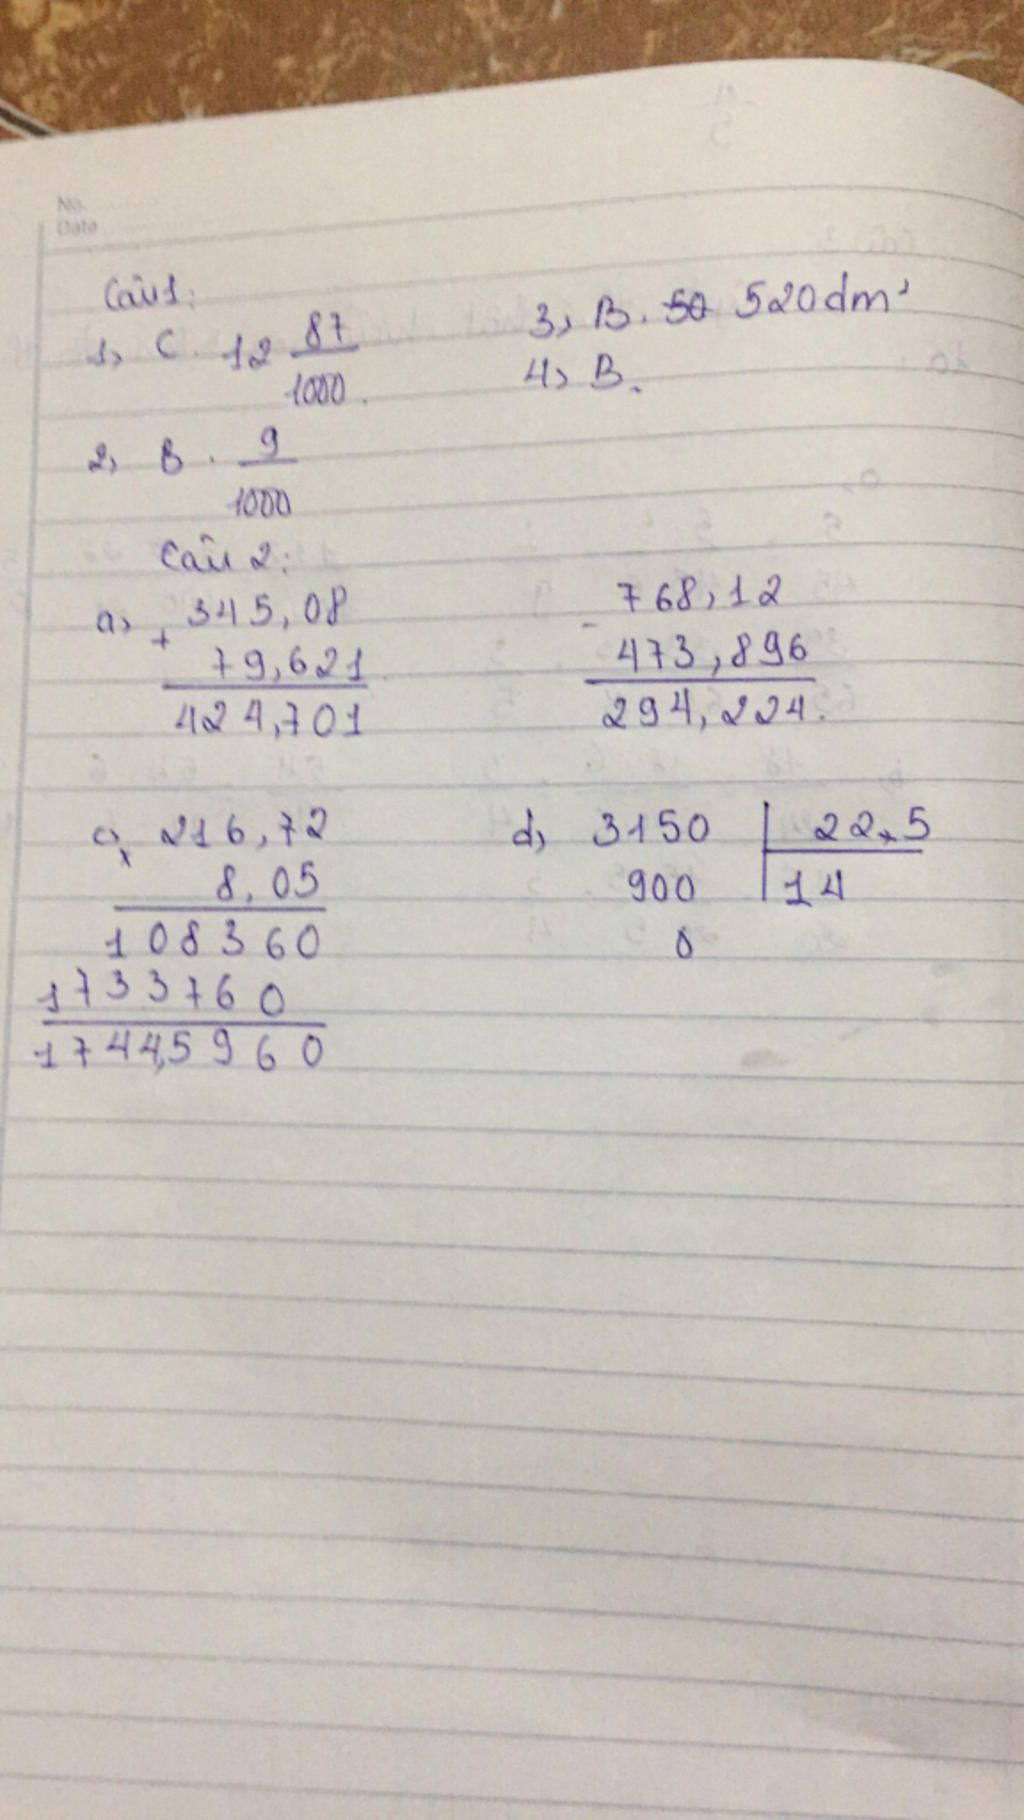 No.
Date
Câu 1:
1, C. 12 87/1000.
2, B. 9/1000
3, B. 50 520dm²
4, B.
Câu 2:
a, 345,08
+
79,621
424,701
768,12
-
473,896
294,224.
c, 216,72
x
8,05
108360
173376 0
1744,5960
d, 3150 | 22,5
900 | 14
0